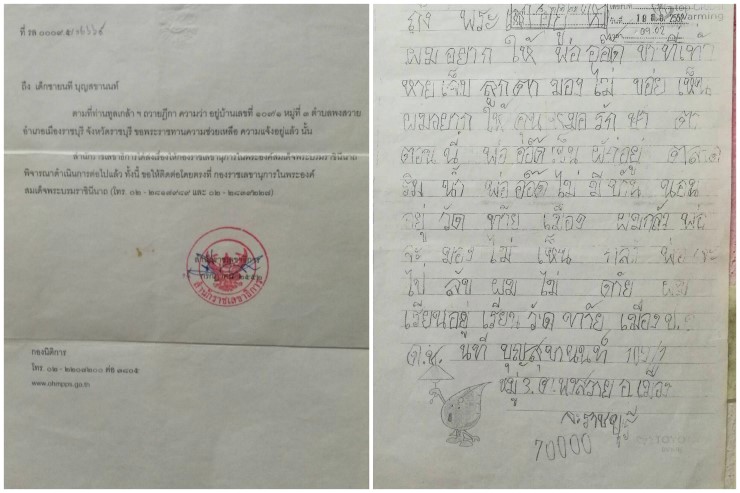 ที่ รล ๐๐๐๙.๕/
ถึง เด็กชายนที บุญสุขานนท์
ตามที่ท่านทูลเกล้า ฯ ถวายฎีกา ความว่า อยู่บ้านเลขที่ ๑๐๙/๑ หมู่ที่ ๓ ตำบลพงสวาย
อำเภอเมืองราชบุรี จังหวัดราชบุรี ขอพระราชทานความช่วยเหลือ ความแจ้งอยู่แล้ว นั้น
สำนักราชเลขาธิการได้ส่งเรื่องให้กองราชเลขานุการในพระองค์สมเด็จพระบรมราชินีนาถ
พิจารณาดำเนินการต่อไปแล้ว ทั้งนี้ ขอให้ติดต่อโดยตรงที่ กองราชเลขานุการในพระองค์
สมเด็จพระบรมราชินีนาถ (โทร.
สำนักราชเลขาธิการ
๒๕๕๒
สำนักราชเลขาธิการ
กองนิติการ
โทร. ๐๒ - ๒๒๐๗๒๐๐ ต่อ ๓๘๐๕
www.ohmpps.go.th
ถึง พระ
วันที่
09.02
Warming
ผมอยาก ให้ พ่ออ๊อด ขาที่เท้า
หายเจ็บ ลูกตา มอง ไม่ ค่อย เห็น
ผมอยาก ให้ คุณ หมอ รัก ษา
ตอน นี้ พ่อ อ๊อด
ริม น้ำ พ่อ อ๊อด ไม่ มี บ้าน นอน
อยู่ วัด ท้าย เมือง ผมกลัว พ่อ
จะ มอง ไม่ เห็น
ไป ส่ง ผม ไม่ ได้ ผม
เรียนอยู่ เรียน วัด ท้าย เมือง
ด.ช. นที บุญสุขานนท์ 109/1
หมู่ 3 ต. พงสวาย อ.เมือง
จ.ราชบุรี
70000